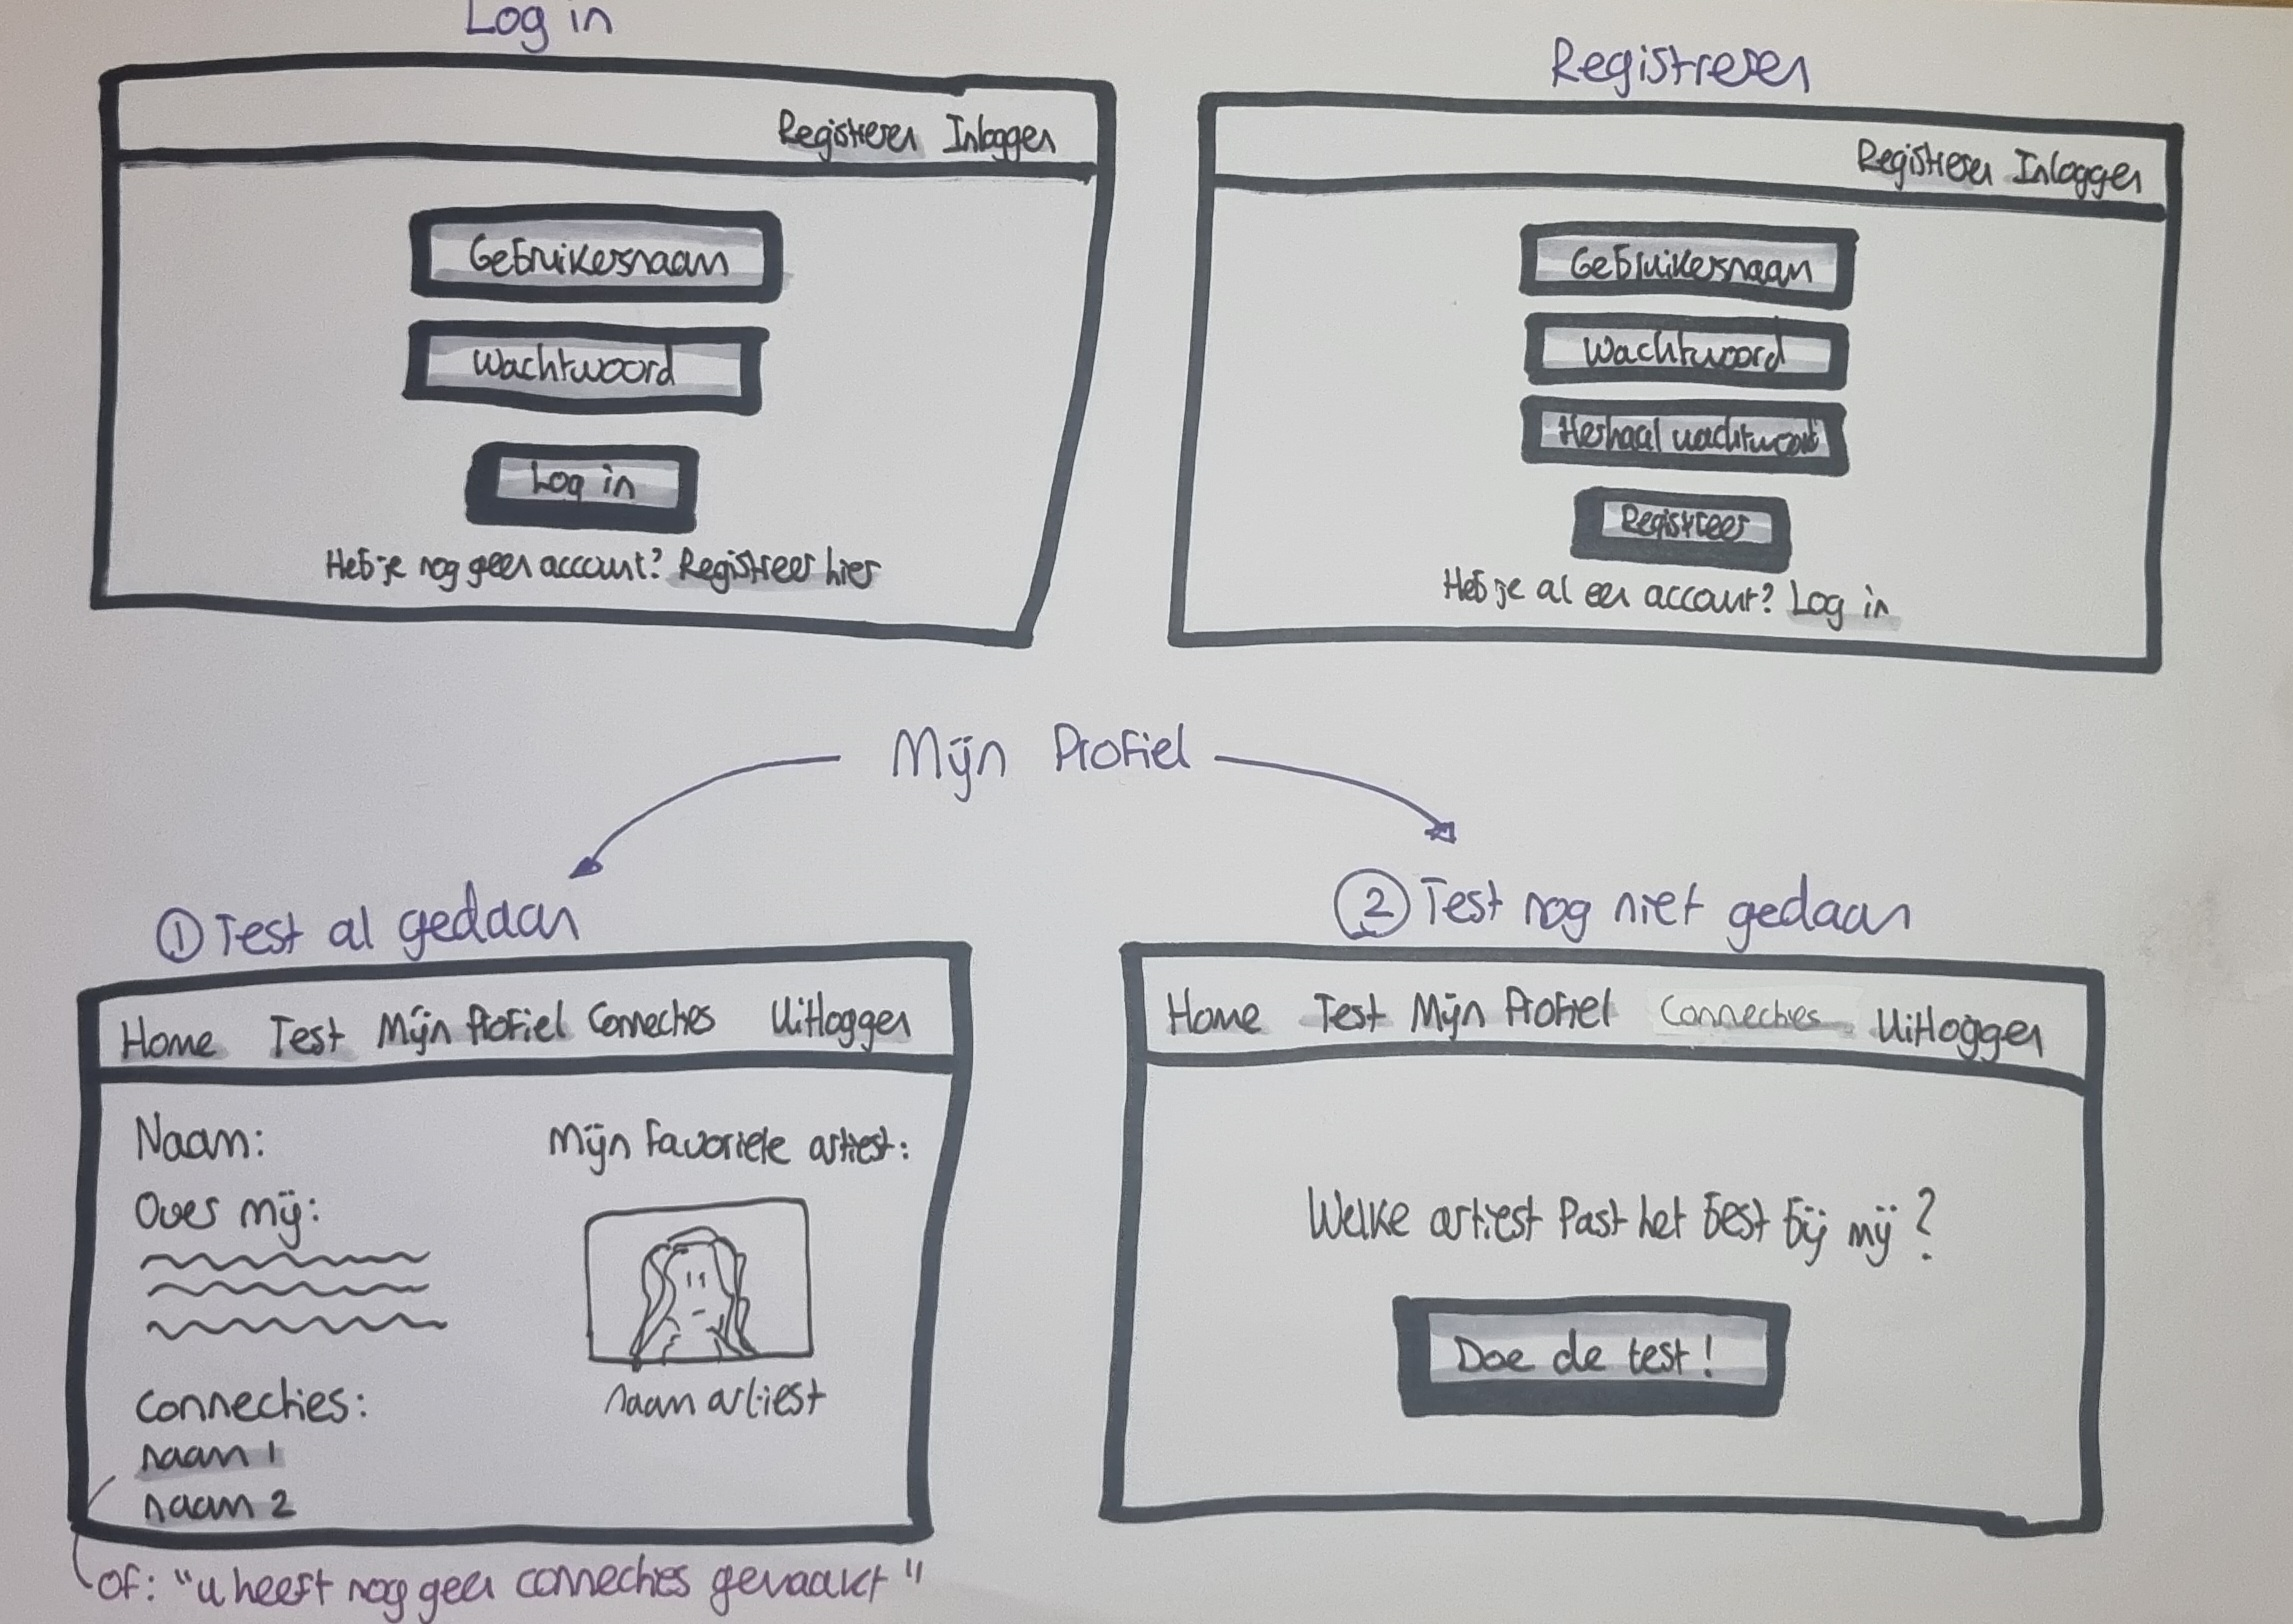 Log in
Registreren Inloggen
Gebruikersnaam
Wachtwoord
Log in
Heb je nog geen account? Registreer hier
Registreren
Registreren Inloggen
Gebruikersnaam
Wachtwoord
Herhaal wachtwoord
Registreer
Heb je al een account? Log in
Mijn Profiel
① Test al gedaan
Home Test Mijn Profiel Connecties Uitloggen
Naam:
Over mij:
Connecties:
naam 1
naam 2
Mijn favoriete artiest:
naam artiest
of: "u heeft nog geen connecties gemaakt"
② Test nog niet gedaan
Home Test Mijn Profiel Connecties Uitloggen
Welke artiest past het best bij mij?
Doe de test!